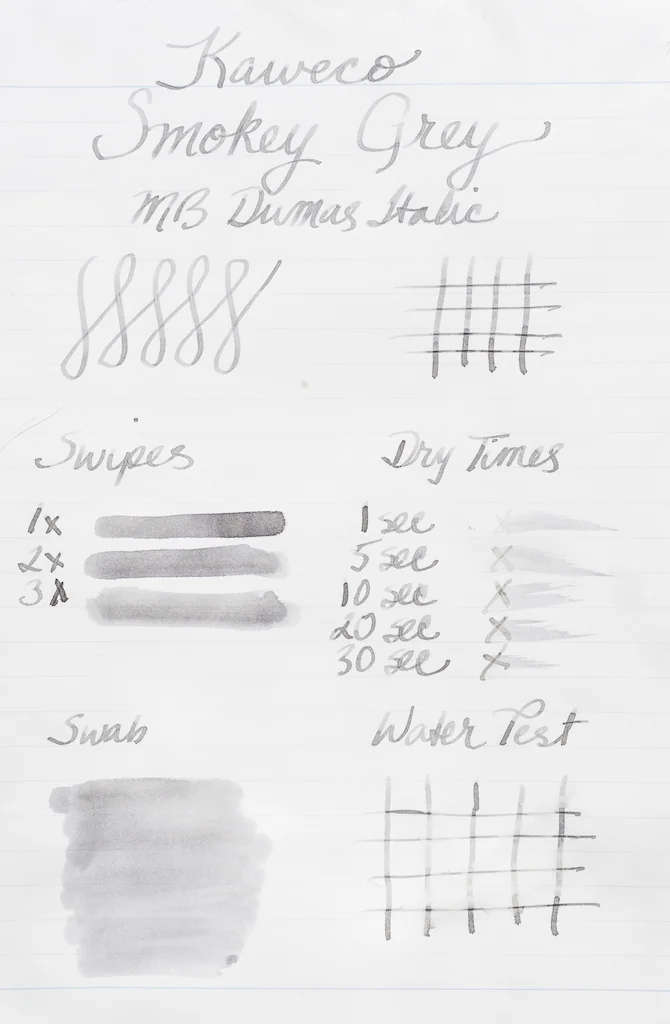 Kaweco
Smokey Grey
MB Dumas Italic
Swipes
1x
2x
3x
Dry Times
1 sec
5 sec
10 sec
20 sec
30 sec
Swab
Water Test